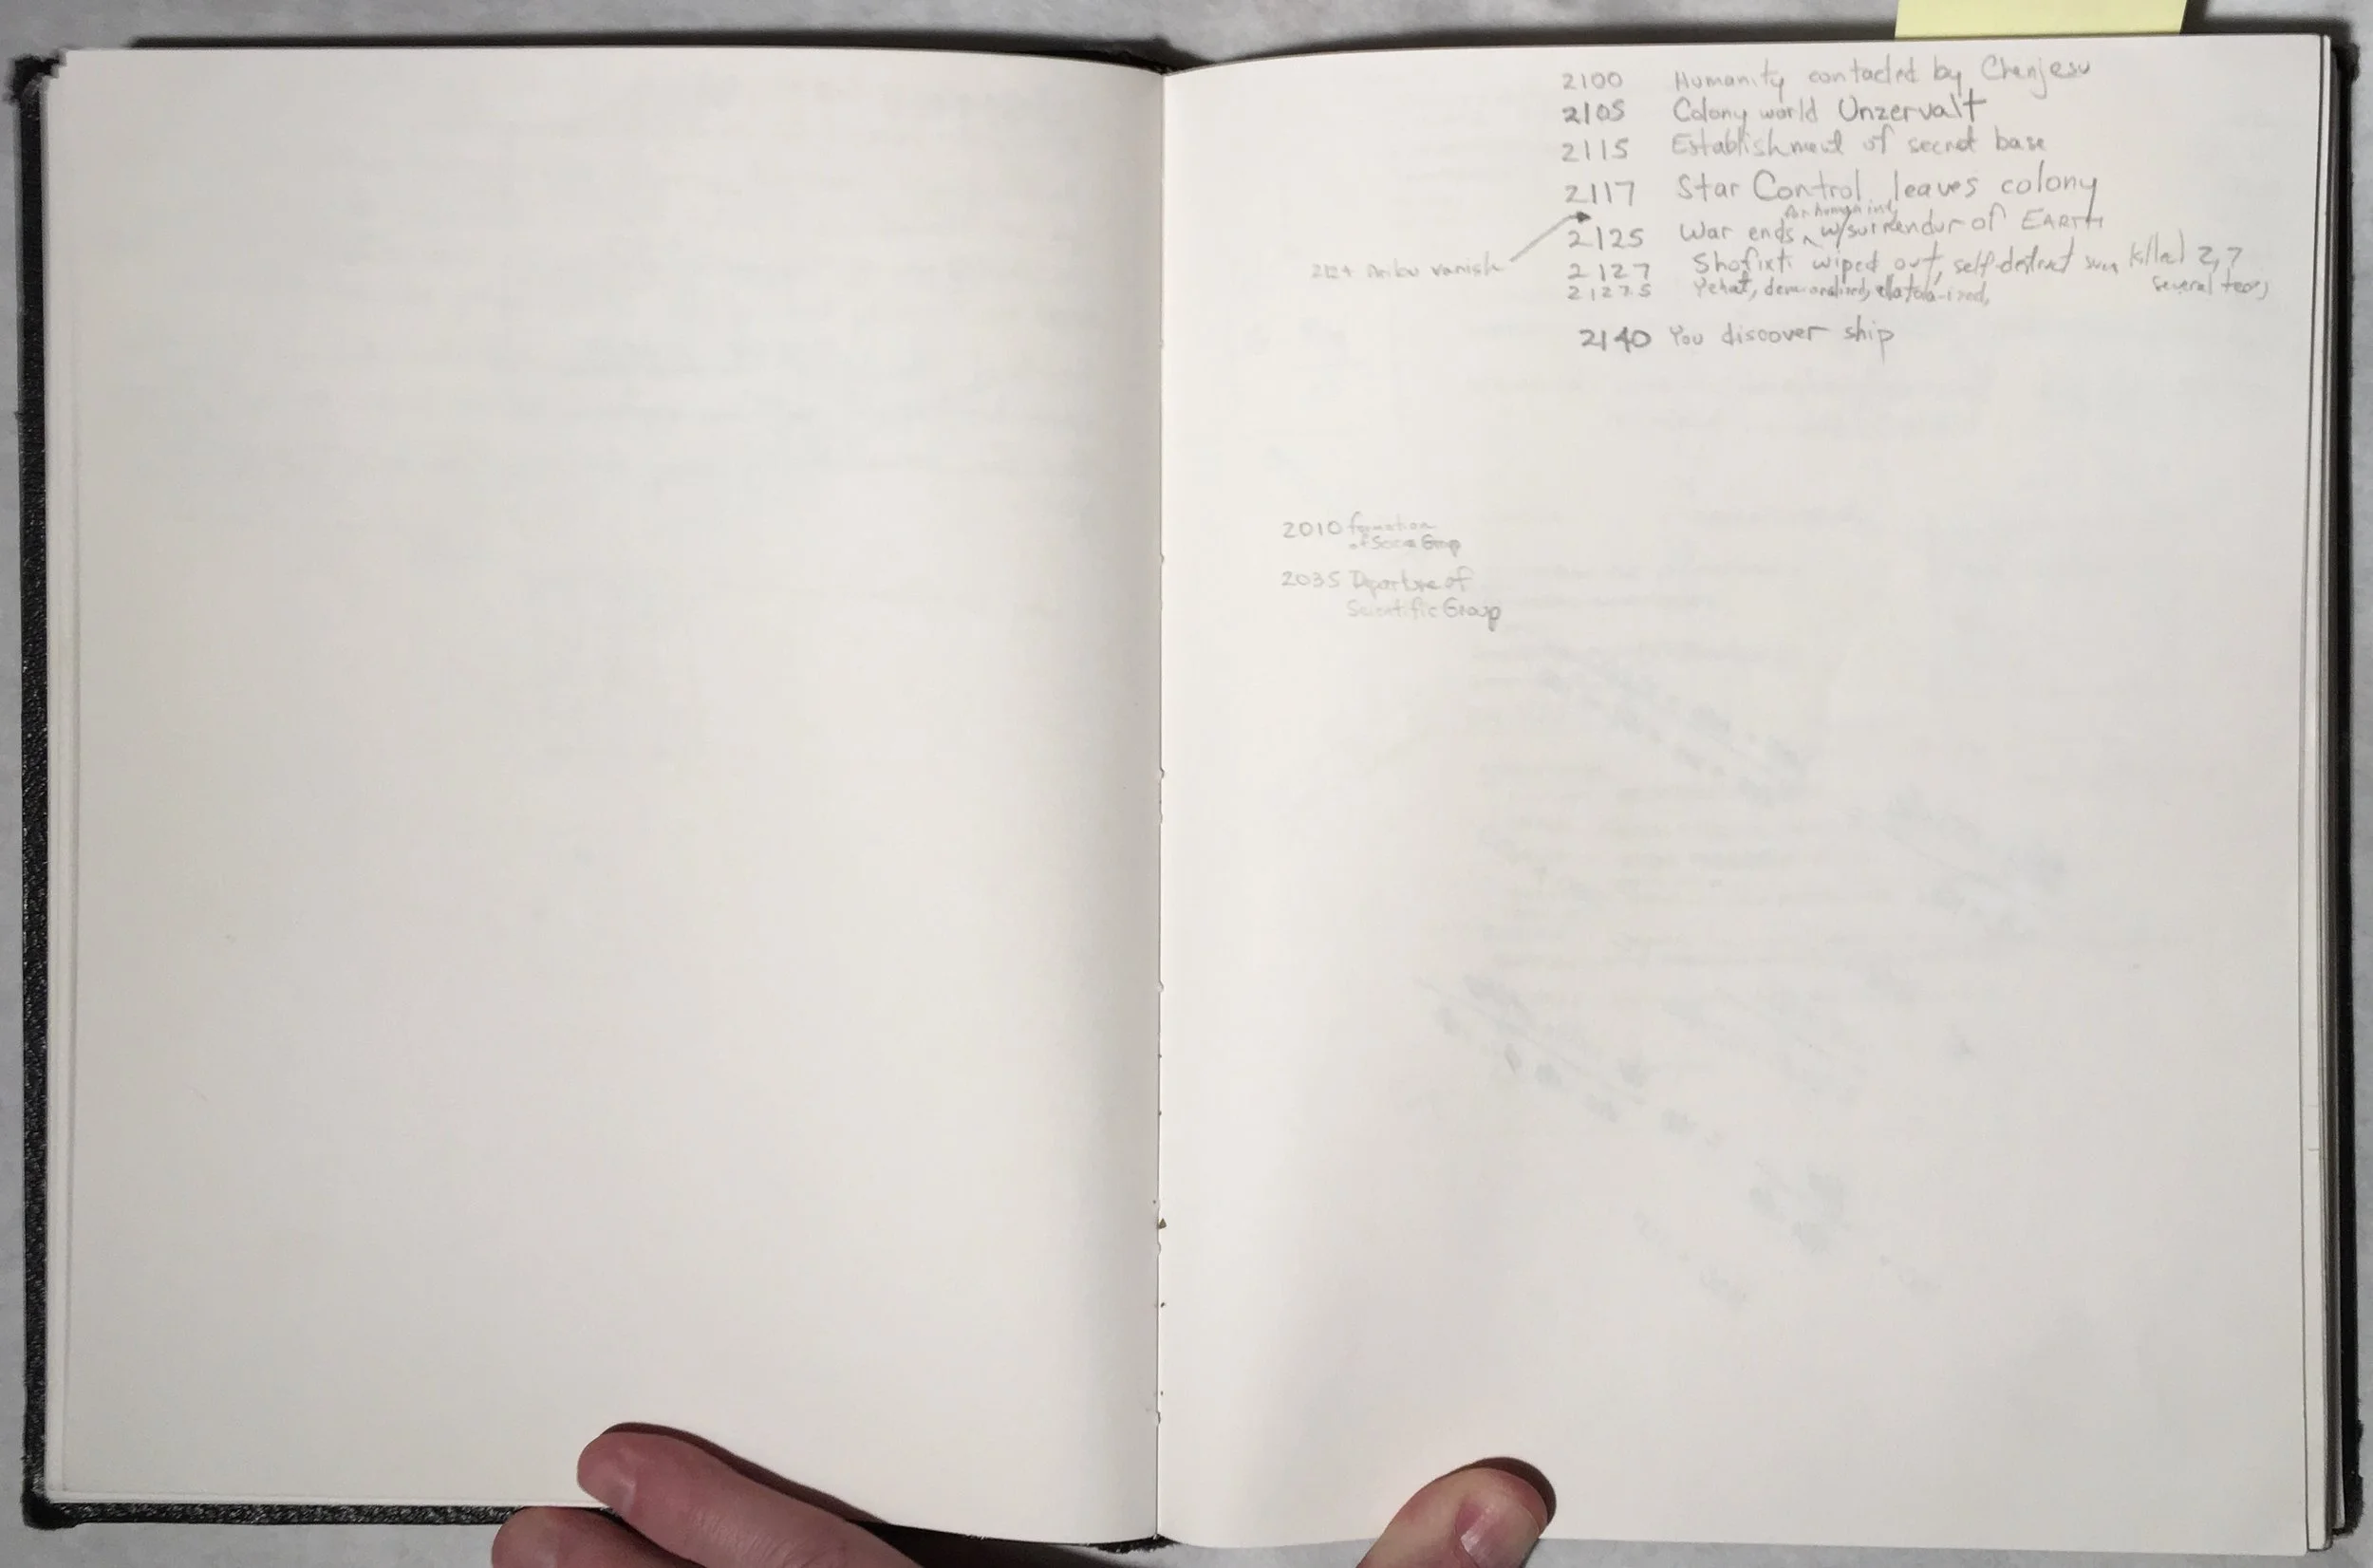 2100 Humanity contacted by Chenjesu
2105 Colony world Unzervalt
2115 Establishment of secret base
2117 Star Control leaves colony
for humanind
2125 War ends ^ w/surrendur of EARTH
vanish
2127 Shofixti wiped out, self-destruct sun killed 2, 7
several
2127.5 Yehat, demoralized,
2140 You discover ship
2010 formation
of Group
2035 Departure of
Scientific Group